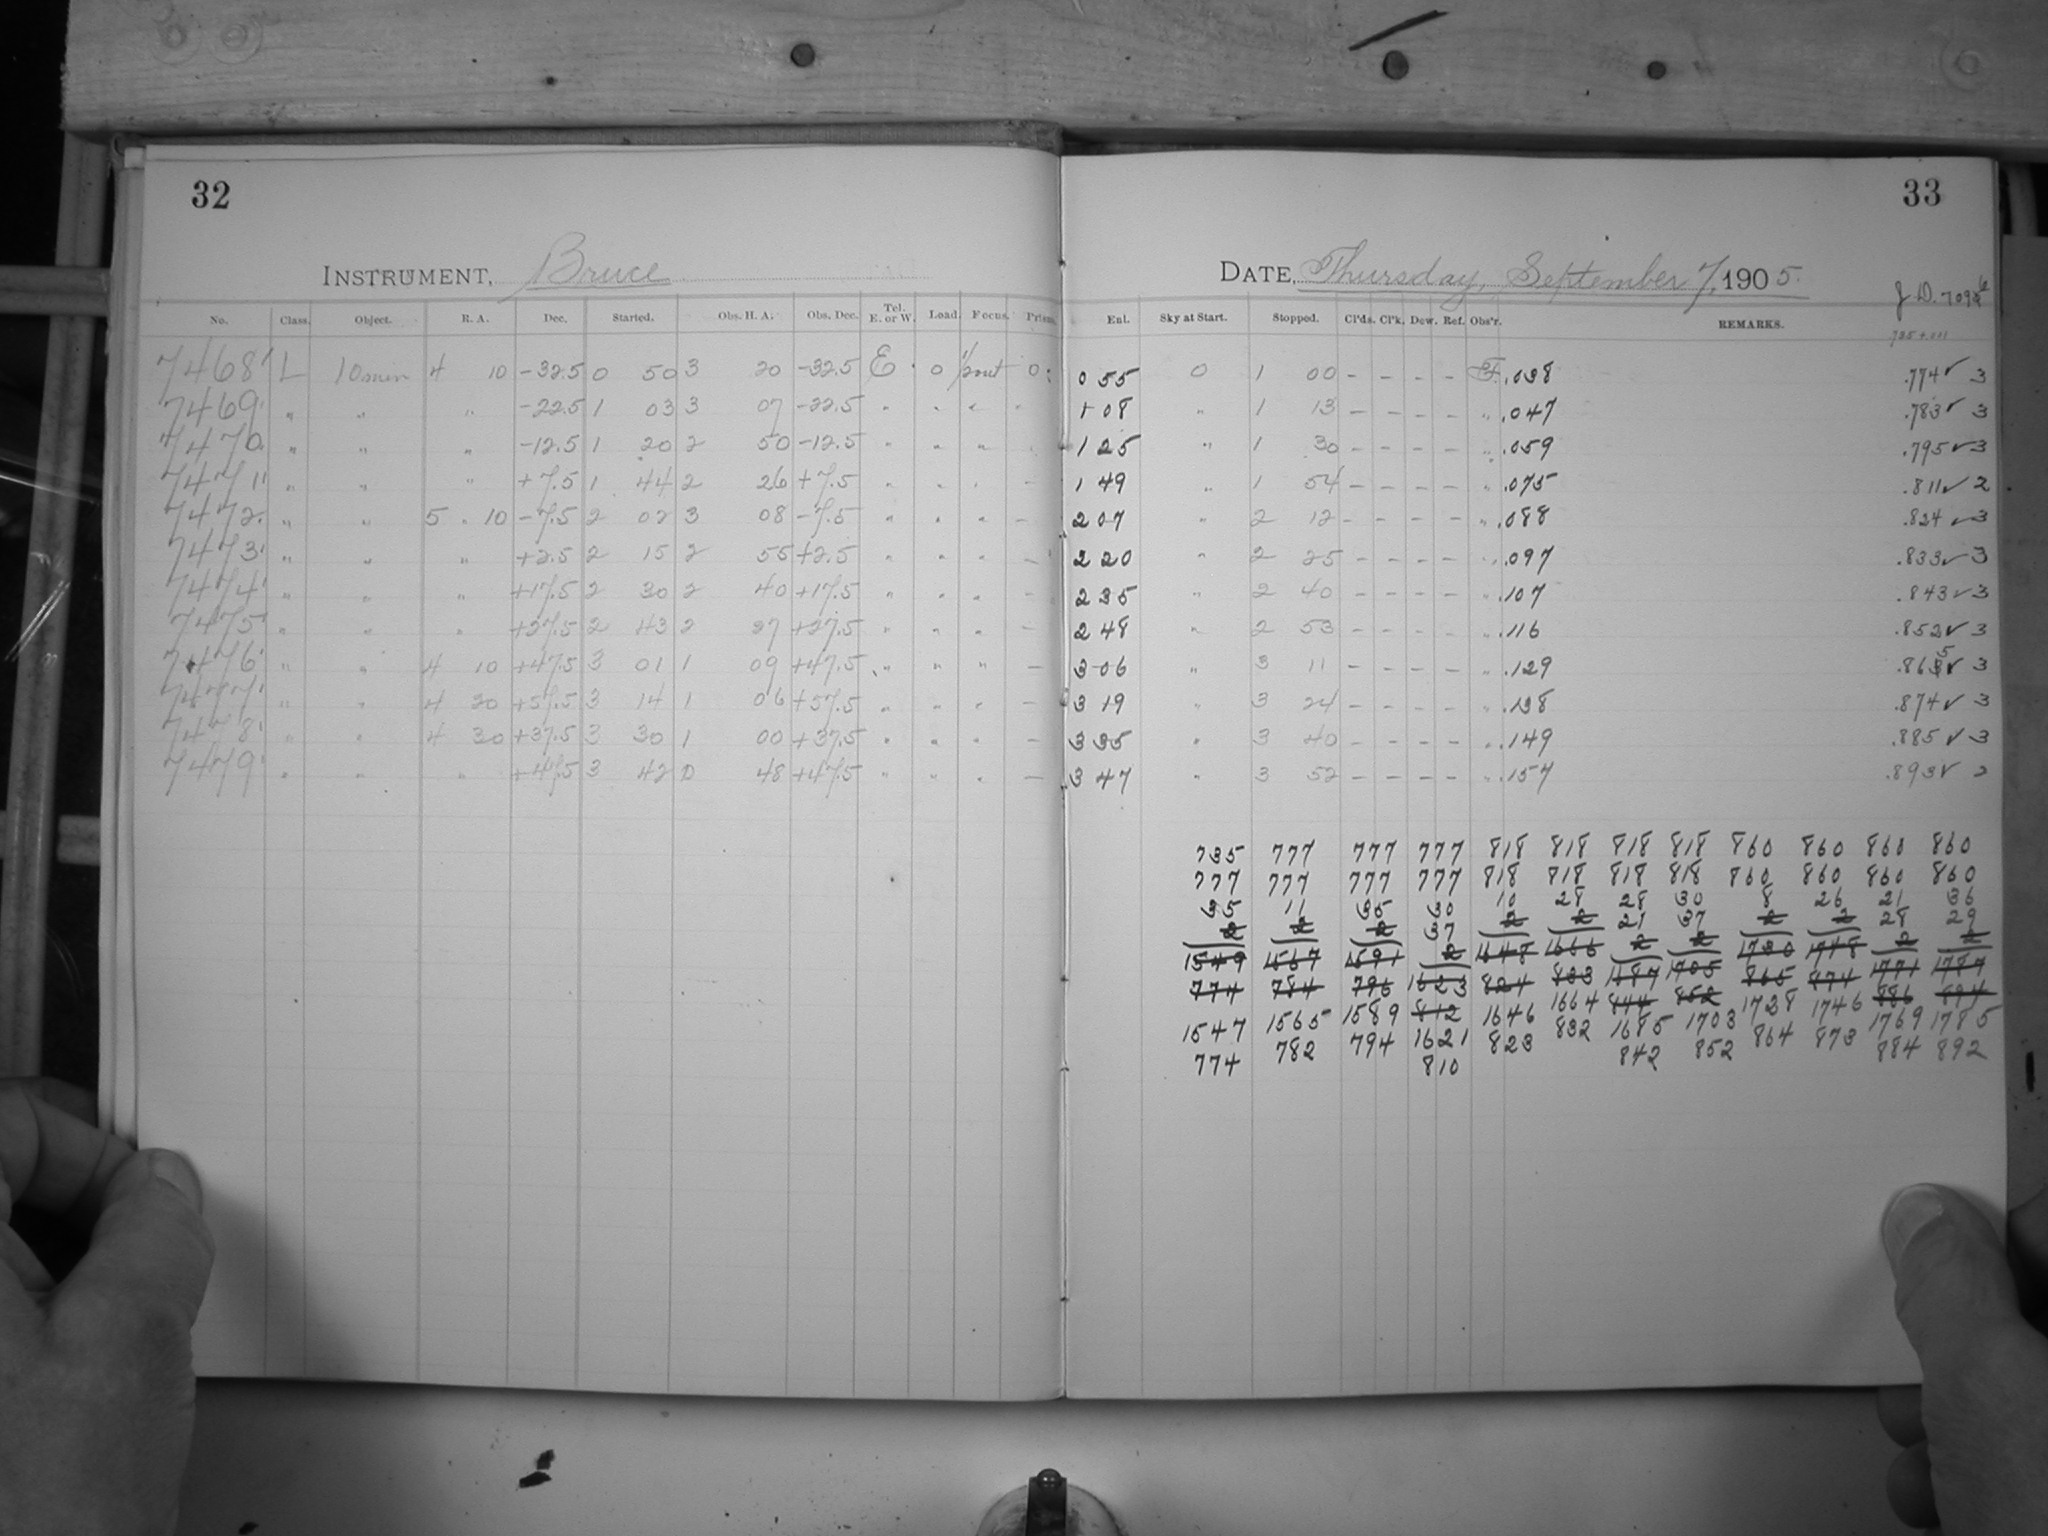 32
INSTRUMENT, Bruce
No. Class. Object. R. A. Dec. Started. Obs. H. A. Obs. Dec. Tel. E. or W. Load. Focus. Prism.
7468 L 10 min 4 10 -32.5 0 50 3 20 -32.5 E 0 1/2 out 0
7469 " " " -22.5 1 03 3 07 -22.5 " " " "
7470 " " " -12.5 1 20 2 50 -12.5 " " "
7471 " " " +7.5 1 44 2 26 +7.5 " " " -
7472 " " 5 10 -7.5 2 02 3 08 -7.5 " " " -
7473 " " " +2.5 2 15 2 55 +2.5 " " " -
7474 " " " +17.5 2 30 2 40 +17.5 " " " -
7475 " " " +27.5 2 43 2 27 +27.5 " " " -
7476 " " 4 10 +47.5 3 01 1 09 +47.5 " " " -
7477 " " 4 20 +57.5 3 14 1 06 +57.5 " " " -
7478 " " 4 30 +37.5 3 30 1 00 +37.5 " " " -
7479 " " " +47.5 3 42 0 48 +47.5 " " " -
33
DATE, Thursday, September 7, 1905.
J.D. 7096
Enl. Sky at Start. Stopped. Cl'ds. Cl'k. Dew. Ref. Obs'r. REMARKS.
0 55 0 1 00 - - - - F. .038 .774 ✓ 3
1 08 " 1 13 - - - - " .047 .783 ✓ 3
1 25 " 1 30 - - - - " .059 .795 ✓ 3
1 49 " 1 54 - - - - " .075 .811 ✓ 2
2 07 " 2 12 - - - - " .088 .824 ✓ 3
2 20 " 2 25 - - - - " .097 .833 ✓ 3
2 35 " 2 40 - - - - " .107 .843 ✓ 3
2 48 " 2 53 - - - - " .116 .852 ✓ 3
3 06 " 3 11 - - - - " .129 .865 ✓ 3
3 19 " 3 24 - - - - " .138 .874 ✓ 3
3 35 " 3 40 - - - - " .149 .885 ✓ 3
3 47 " 3 52 - - - - " .157 .893 ✓ 2
735 777 777 777 818 818 818 818 860 860 860 860
777 777 777 777 818 818 818 818 860 860 860 860
35 11 35 30 10 28 28 30 8 26 21 36
2 2 2 37 2 2 21 37 2 2 28 29
1549 1567 1591 2 1648 1666 2 2 1730 1748 2 2
774 784 796 1623 824 833 1687 1705 865 874 1771 1787
1547 1565 1589 812 1646 1664 844 852 1738 1746 886 894
774 782 794 1621 823 832 1685 1703 864 873 1769 1785
810 842 852 884 892